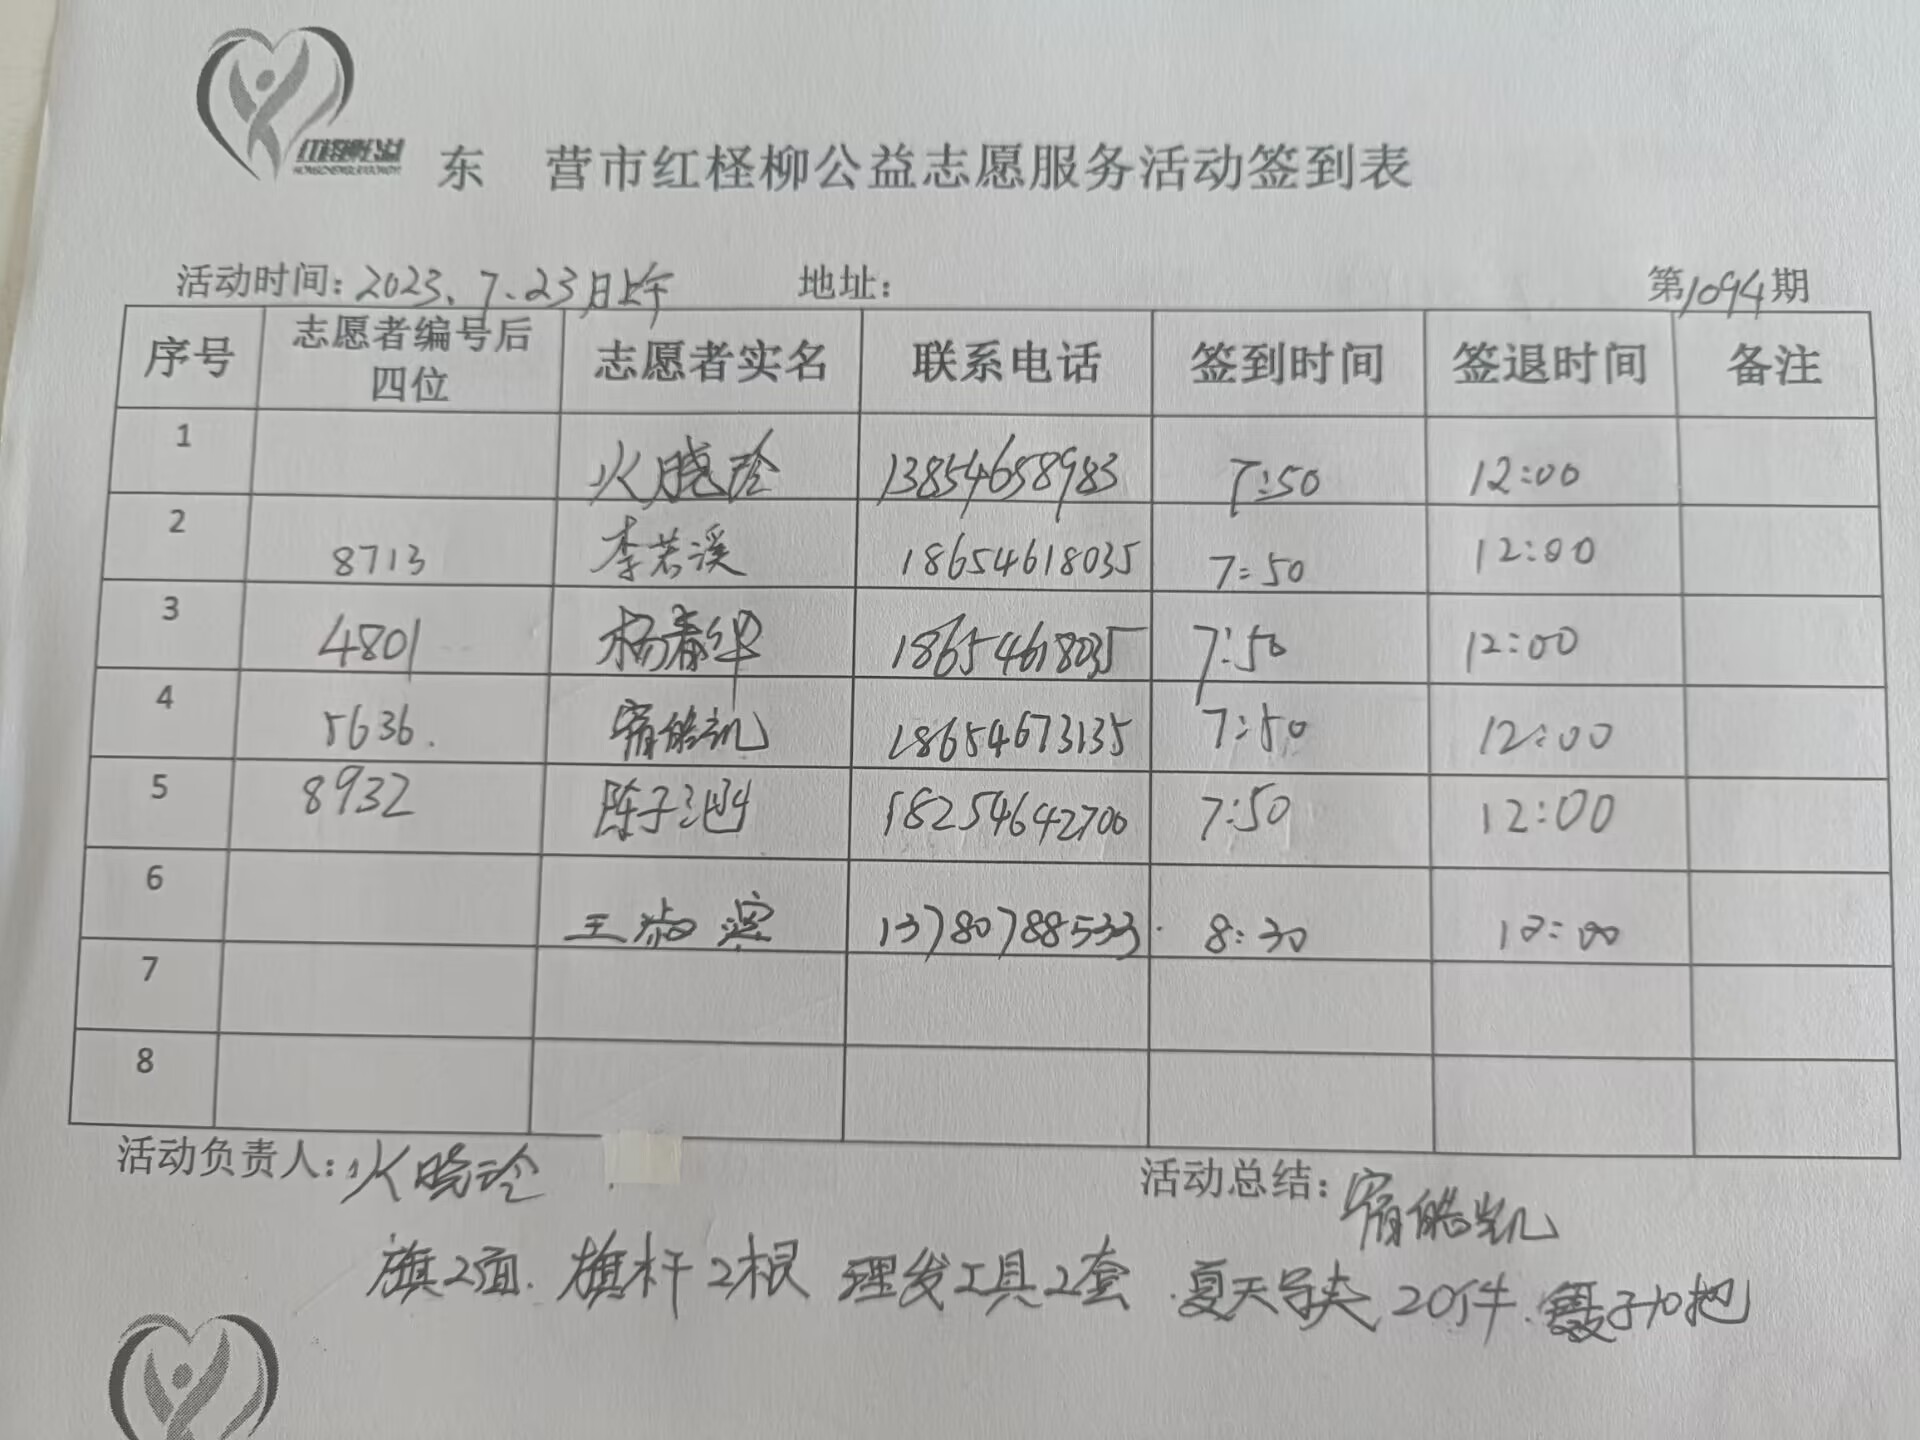 东 营市红柽柳公益志愿服务活动签到表
活动时间：2023.7.23日上午 地址： 第1094期
序号 志愿者编号后四位 志愿者实名 联系电话 签到时间 签退时间 备注
1 火晓玲 13854658983 7:50 12:00
2 8713 李若溪 18654618035 7:50 12:00
3 4801 杨春华 18654618035 7:50 12:00
4 5636. 宿皓凯 18654673135 7:50 12:00
5 8932 陈子 18254642700 7:50 12:00
6 王 13780788533 8:30 12:00
7
8
活动负责人：火晓玲 活动总结：宿皓凯
旗2面. 旗杆2根 理发工具2套. 夏天马夹20件. 子10把